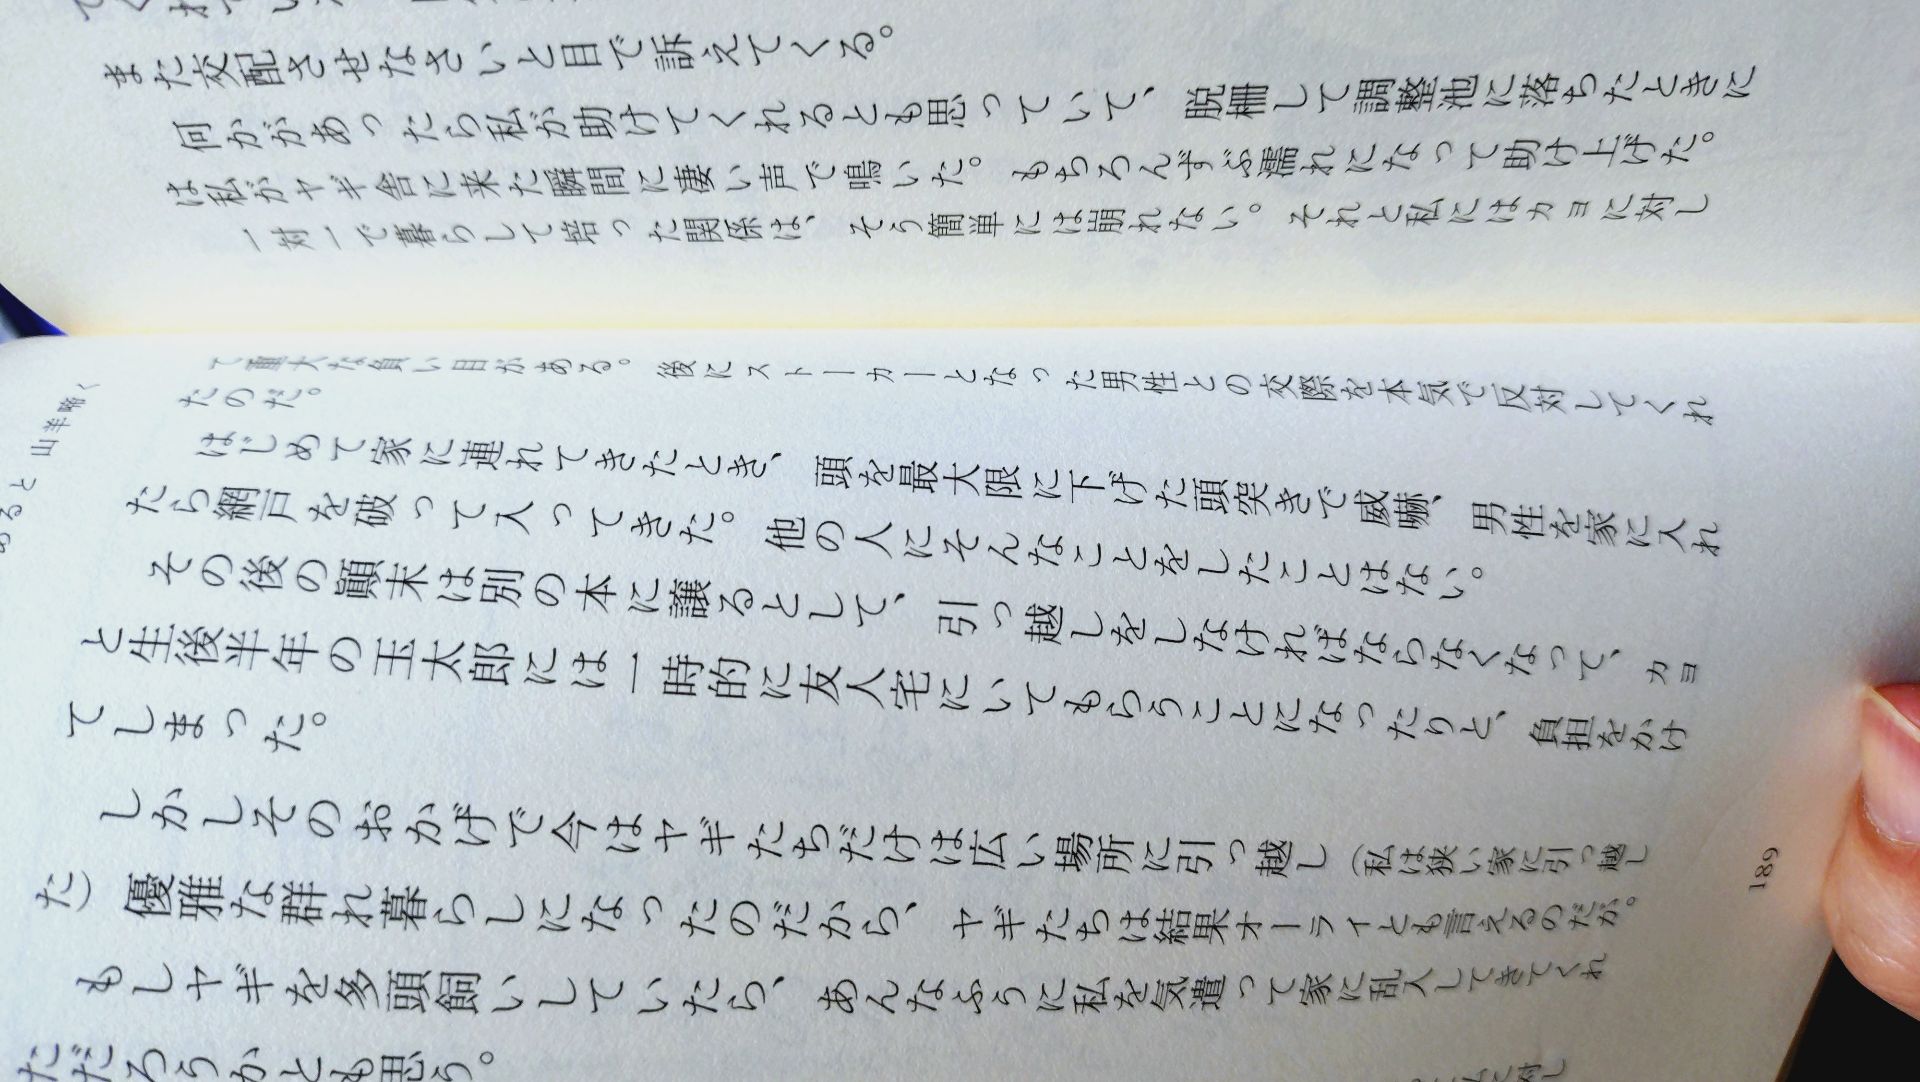 また交配させなさいと目で訴えてくる。
何かがあったら私が助けてくれるとも思っていて、脱柵して調整池に落ちたときに
は私がヤギ舎に来た瞬間に凄い声で鳴いた。もちろんずぶ濡れになって助け上げた。
一対一で暮らして培った関係は、そう簡単には崩れない。それと私にはカヨに対し
て重大な負い目がある。後にストーカーとなった男性との交際を本気で反対してくれ
たのだ。
はじめて家に連れてきたとき、頭を最大限に下げた頭突きで威嚇、男性を家に入れ
たら網戸を破って入ってきた。他の人にそんなことをしたことはない。
その後の顚末は別の本に譲るとして、引っ越しをしなければならなくなって、カヨ
と生後半年の玉太郎には一時的に友人宅にいてもらうことになったりと、負担をかけ
てしまった。
しかしそのおかげで今はヤギたちだけは広い場所に引っ越し（私は狭い家に引っ越し
た）優雅な群れ暮らしになったのだから、ヤギたちは結果オーライとも言えるのだが。
もしヤギを多頭飼いしていたら、あんなふうに私を気遣って家に乱入してきてくれ
ただろうかとも思う。
山羊啼く
189